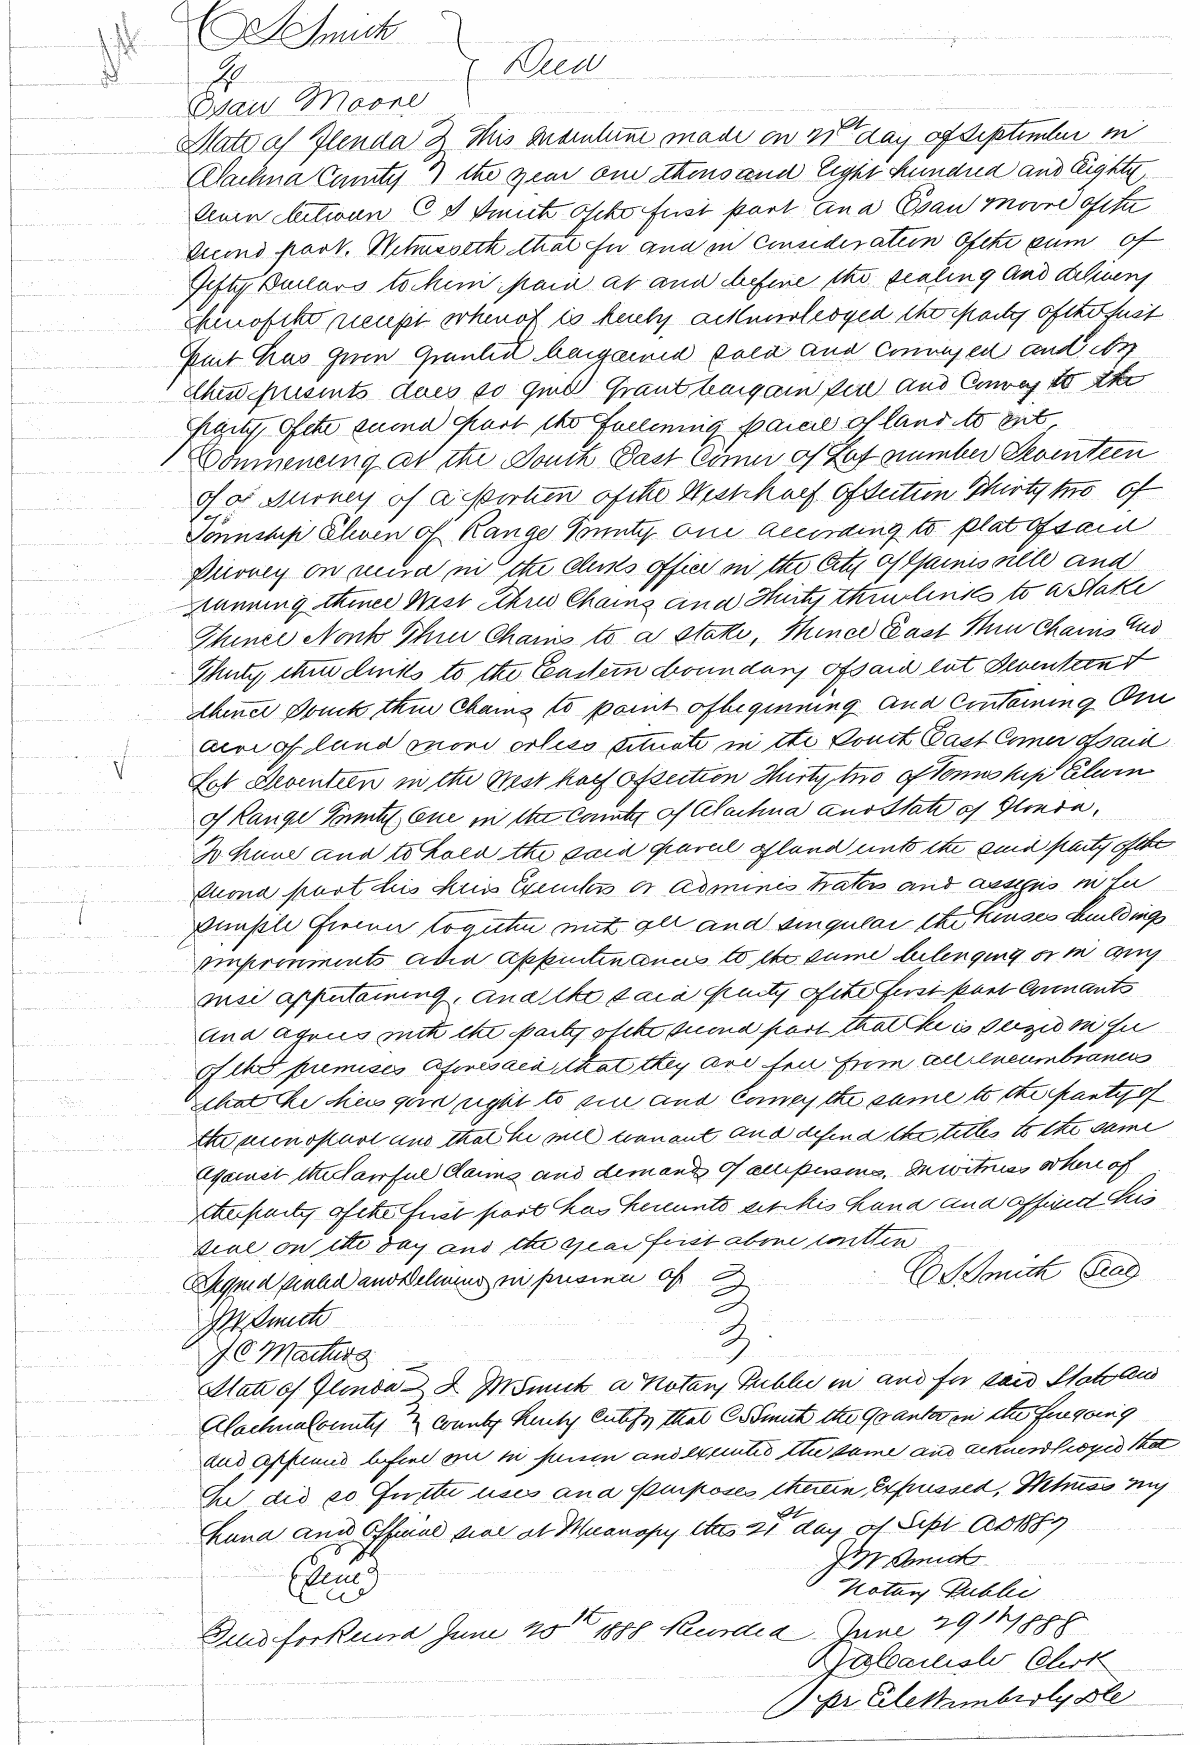 C S Smith
To } Deed
Esau Moore
State of Florida } This Indenture made on 21st day of September in
Alachua County } the year one thousand Eight hundred and Eighty
seven between C S Smith of the first part and Esau Moore of the
second part. Witnesseth that for and in consideration of the sum of
Fifty Dollars to him paid at and before the sealing and delivery
hereof the receipt whereof is hereby acknowledged the party of the first
part has given granted bargained sold and conveyed and by
these presents does so give Grant bargain sell and Convey to the
party of the second part the following parcel of land to wit,
Commencing at the South East Corner of Lot number Seventeen
of a survey of a portion of the West half of Section Thirty two of
Township Eleven of Range Twenty one according to plat of said
Survey on record in the Clerks office in the City of Gainesville and
running thence West three Chains and Thirty three links to a Stake
Thence North Three Chains to a stake, Thence East Three Chains and
Thirty three links to the Eastern boundary of said lot Seventeen &
thence South three Chains to point of beginning and Containing One
acre of land more or less situate in the South East Corner of said
Lot Seventeen in the West half of section Thirty two of Township Eleven
of Range Twenty One in the County of Alachua and State of Florida.
To have and to hold the said parcel of land unto the said party of the
second part his heirs Executors or administrators and assigns in fee
simple forever together with all and singular the houses buildings
improvements and appurtenances to the same belonging or in any
wise appertaining. and the said party of the first part Covenants
and agrees with the party of the second part that he is seized in fee
of the premises aforesaid that they are free from all encumbrances
that he has good right to sell and Convey the same to the party of
the second part and that he will warrant and defend the titles to the same
against the lawful Claims and demands of all persons. In witness where of
the party of the first part has hereunto set his hand and affixed his
seal on the day and the year first above written
Signed sealed and Delivered in presence of } C S Smith (Seal)
J W Smith }
J C Mathers
State of Florida } I J W Smith a Notary Public in and for said State and
Alachua County } County hereby Certify that C S Smith the Grantor in the foregoing
deed appeared before me in person and executed the same and acknowledged that
he did so for the uses and purposes therein Expressed. Witness my
hand and Official seal at Micanopy this 21st day of Sept AD 1887
J W Smith
(Seal)
Notary Public
Filed for Record June 20th 1888 Recorded June 29th 1888
Clerk
pr